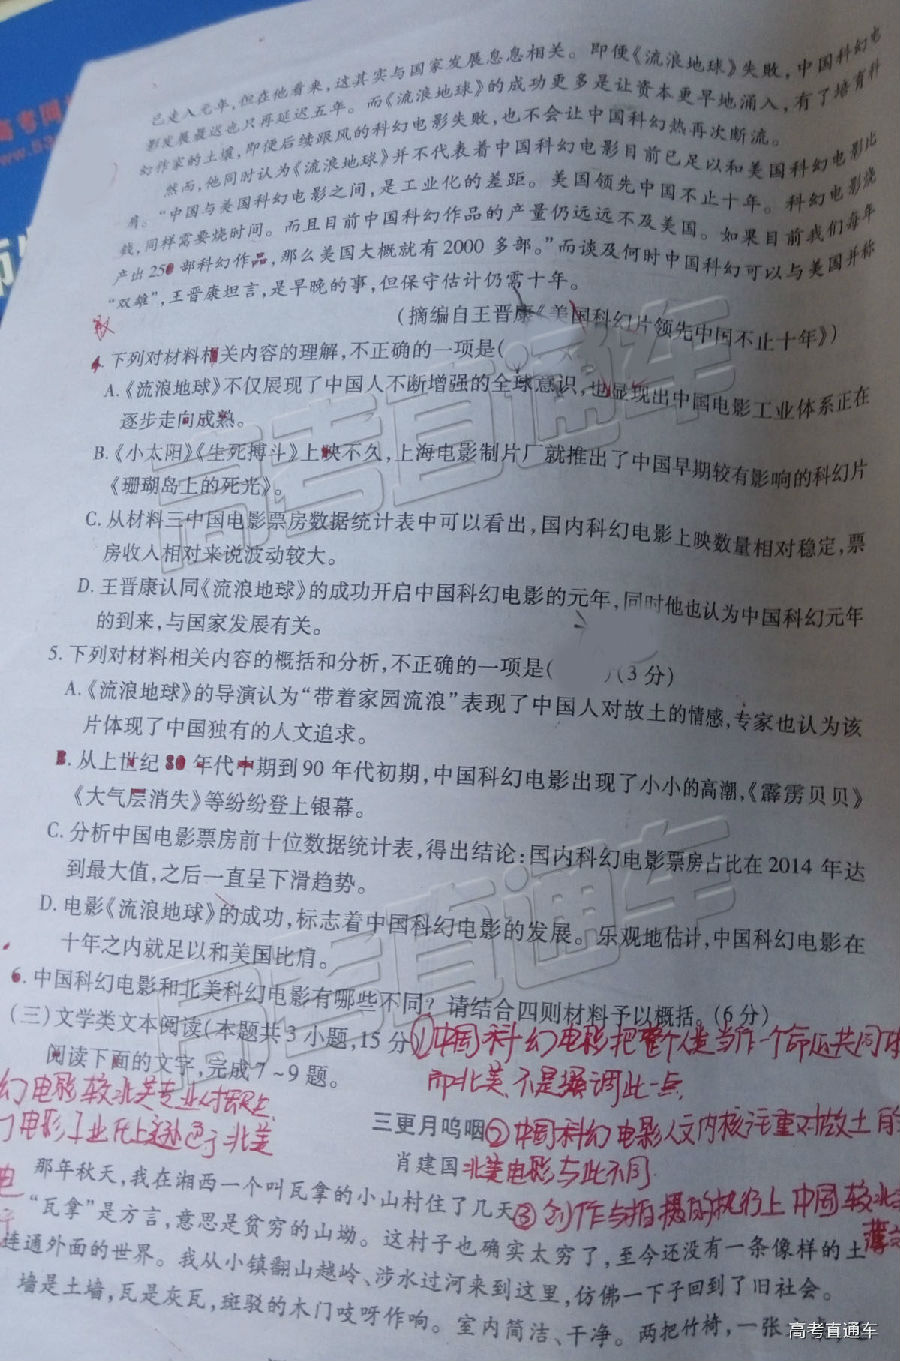 已走入元年,但在他看来,这其实与国家发展息息相关。即使《流浪地球》失败,中国科幻电
影发展最迟也只再延迟五年。而《流浪地球》的成功更多是让资本更早地涌入,有了培育科
幻作家的土壤,即便后续跟风的科幻电影失败,也不会让中国科幻热再次断流。
然而,他同时认为《流浪地球》并不代表着中国科幻电影目前已足以和美国科幻电影比
肩。“中国与美国科幻电影之间,是工业化的差距。美国领先中国不止十年。科幻电影烧
钱,同样需要烧时间。而且目前中国科幻作品的产量仍远远不及美国。如果目前我们每年
产出250部科幻作品,那么美国大概就有2000多部。”而谈及何时中国科幻可以与美国并称
“双雄”,王晋康坦言,是早晚的事,但保守估计仍需十年。
(摘编自王晋康《美国科幻片领先中国不止十年》)
4.下列对材料相关内容的理解,不正确的一项是(
A.《流浪地球》不仅展现了中国人不断增强的全球意识,也显现出中国电影工业体系正在
逐步走向成熟。
B.《小太阳》《生死搏斗》上映不久,上海电影制片厂就推出了中国早期较有影响的科幻片
《珊瑚岛上的死光》。
C.从材料三中国电影票房数据统计表中可以看出,国内科幻电影上映数量相对稳定,票
房收入相对来说波动较大。
D.王晋康认同《流浪地球》的成功开启中国科幻电影的元年,同时他也认为中国科幻元年
的到来,与国家发展有关。
5.下列对材料相关内容的概括和分析,不正确的一项是( )(3分)
A.《流浪地球》的导演认为“带着家园流浪”表现了中国人对故土的情感,专家也认为该
片体现了中国独有的人文追求。
B.从上世纪80年代中期到90年代初期,中国科幻电影出现了小小的高潮,《霹雳贝贝》
《大气层消失》等纷纷登上银幕。
C.分析中国电影票房前十位数据统计表,得出结论:国内科幻电影票房占比在2014年达
到最大值,之后一直呈下滑趋势。
D.电影《流浪地球》的成功,标志着中国科幻电影的发展。乐观地估计,中国科幻电影在
十年之内就足以和美国比肩。
6.中国科幻电影和北美科幻电影有哪些不同?请结合四则材料予以概括。(6分)
(三)文学类文本阅读(本题共3小题,15分
①中国科幻电影把整个人类当作一个命运共同体
阅读下面的文字,完成7~9题。
而北美不是强调此一点
幻电影较北美专业
门电影工业化上逊色于北美
三更月呜咽
②中国科幻电影人文内核注重对故土的
肖建国
北美电影与此不同
那年秋天,我在湘西一个叫瓦拿的小山村住了几天
③创作与拍摄的执行上中国较北美
薄
“瓦拿”是方言,意思是贫穷的山坳。这村子也确实太穷了,至今还没有一条像样的土
连通外面的世界。我从小镇翻山越岭、涉水过河来到这里,仿佛一下子回到了旧社会。
墙是土墙,瓦是灰瓦,斑驳的木门吱呀作响。室内简洁、干净。两把竹椅,一张
高考直通车
高考直通车
高考直通车